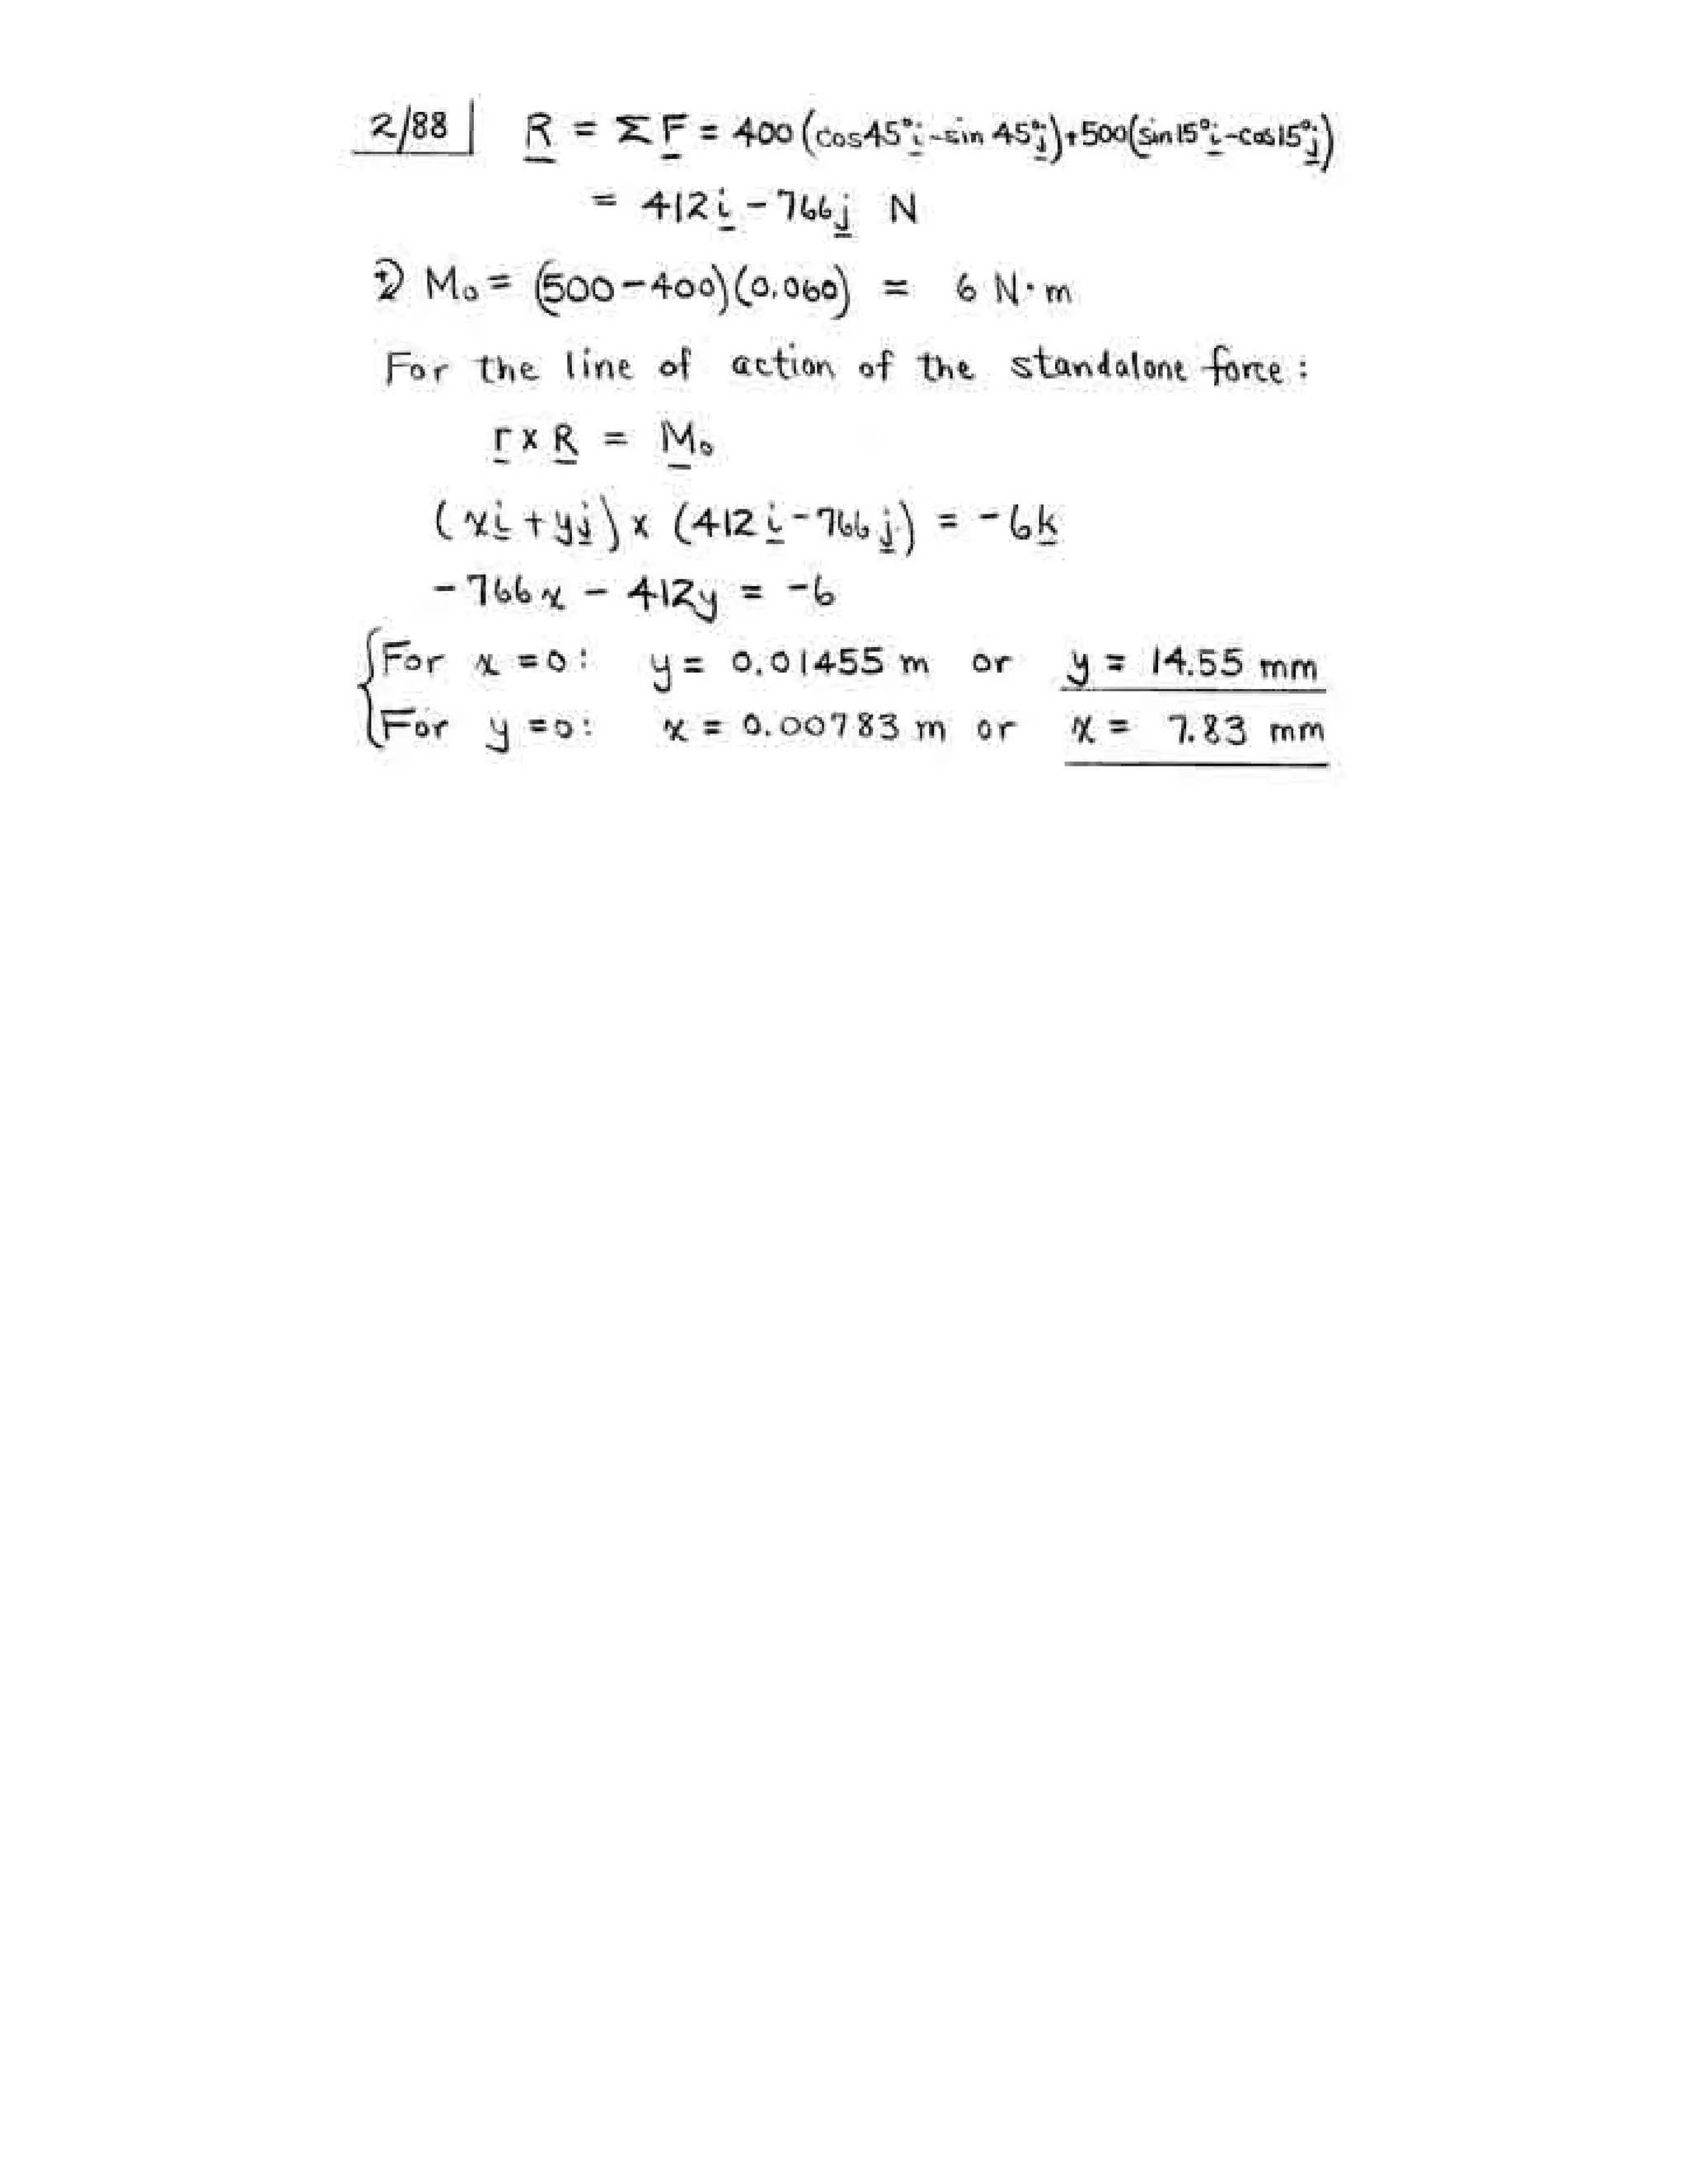 2/88 R = ΣF = 400(cos45°i - sin 45°j) + 500(sin15°i - cos15°j)
= 412i - 766j N
+⤵ Mo = (500-400)(0.060) = 6 N·m
For the line of action of the standalone force :
r x R = Mo
(xi + yj) x (412i - 766j) = -6k
-766x - 412y = -6
For x = 0: y = 0.01455 m or y = 14.55 mm
For y = 0: x = 0.00783 m or x = 7.83 mm